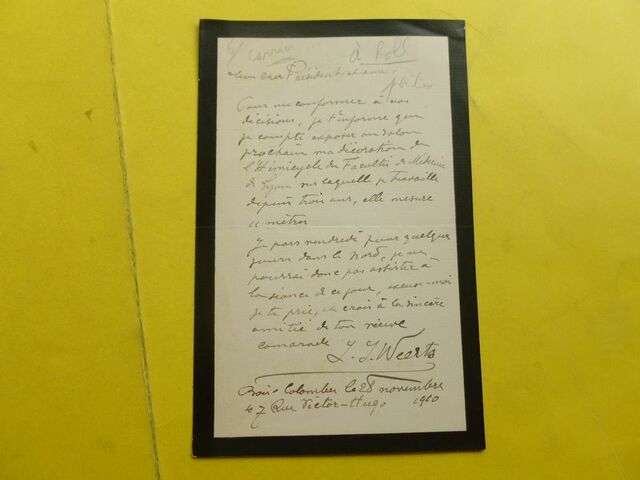 à Roll
Mon cher Président et ami
Pour me conformer à nos
décisions, je t'informe que
je compte exposer au salon
prochain ma décoration de
l'Hémicycle de Faculté de Médecine
de Lyon sur laquelle je travaille
depuis trois ans, elle mesure
mètres
Je pars vendredi pour quelques
jours dans le Nord, je ne
pourrai donc pas assister à
la séance de ce jour, excuse-moi
je te prie, et crois à la sincère
amitié de ton vieux
camarade J. J. Weerts
Bois-Colombes le 28 novembre
7 Rue Victor-Hugo 1910